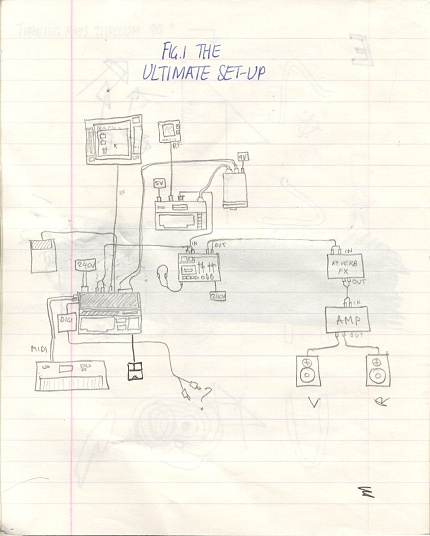 FIG.1 THE
ULTIMATE SET-UP
5V
IN
OUT
IN
240V
REVERB
FX
OUT
240V
IN
DIGI
AMP
OUT
MIDI
?